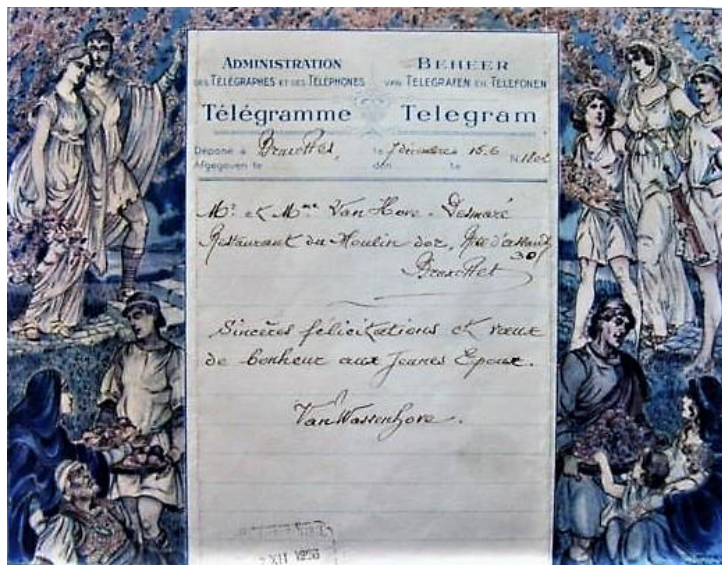 ADMINISTRATION
DES TÉLÉGRAPHES ET DES TÉLÉPHONES
BEHEER
VAN TELEGRAFEN EN TELEFONEN
Télégramme
Telegram
Déposé à Bruxelles, le 7 décembre 15.6 N.
Afgegeven te den te
Mr. et Mme Van Hove-Desmaré
Restaurant du Moulin dor, Rue d'assaut
30
Bruxelles
Sincères félicitations et vœux
de bonheur aux Jeunes Epoux.
VanWassenhove.
XII